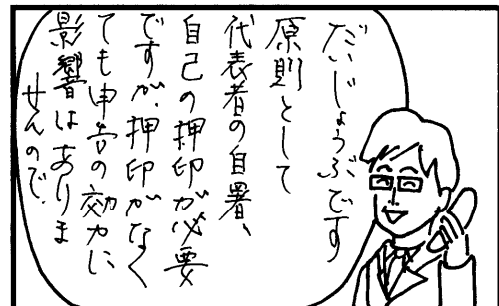 だいじょうぶです
原則として
代表者の自署、
自己の押印が必要
ですが、押印がなく
ても申告の効力に
影響はありま
せんので、